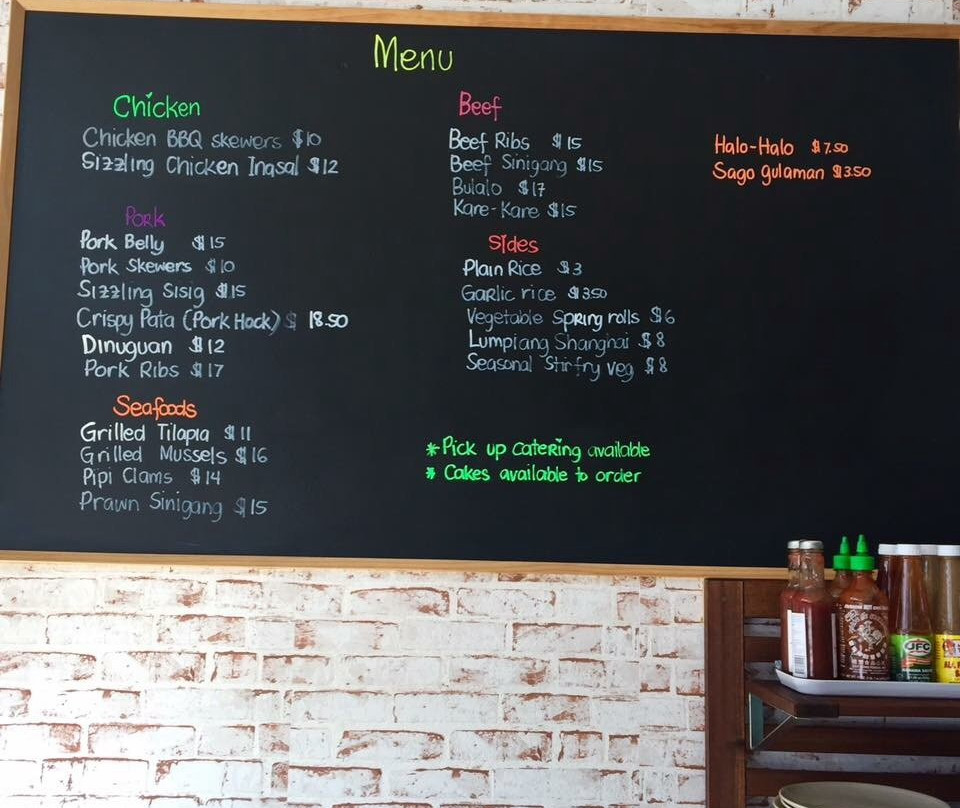 Menu
Chicken
Chicken BBQ skewers $10
Sizzling Chicken Inasal $12
Pork
Pork Belly $15
Pork Skewers $10
Sizzling Sisig $15
Crispy Pata (Pork Hock) $ 18.50
Dinuguan $12
Pork Ribs $17
Seafoods
Grilled Tilapia $11
Grilled Mussels $16
Pipi Clams $14
Prawn Sinigang $15
Beef
Beef Ribs $15
Beef Sinigang $15
Bulalo $17
Kare-Kare $15
Sides
Plain Rice $3
Garlic rice $3.50
Vegetable Spring rolls $6
Lumpiang Shanghai $8
Seasonal Stirfry veg $8
* Pick up catering available
* Cakes available to order
Halo-Halo $7.50
Sago gulaman $3.50
UFC